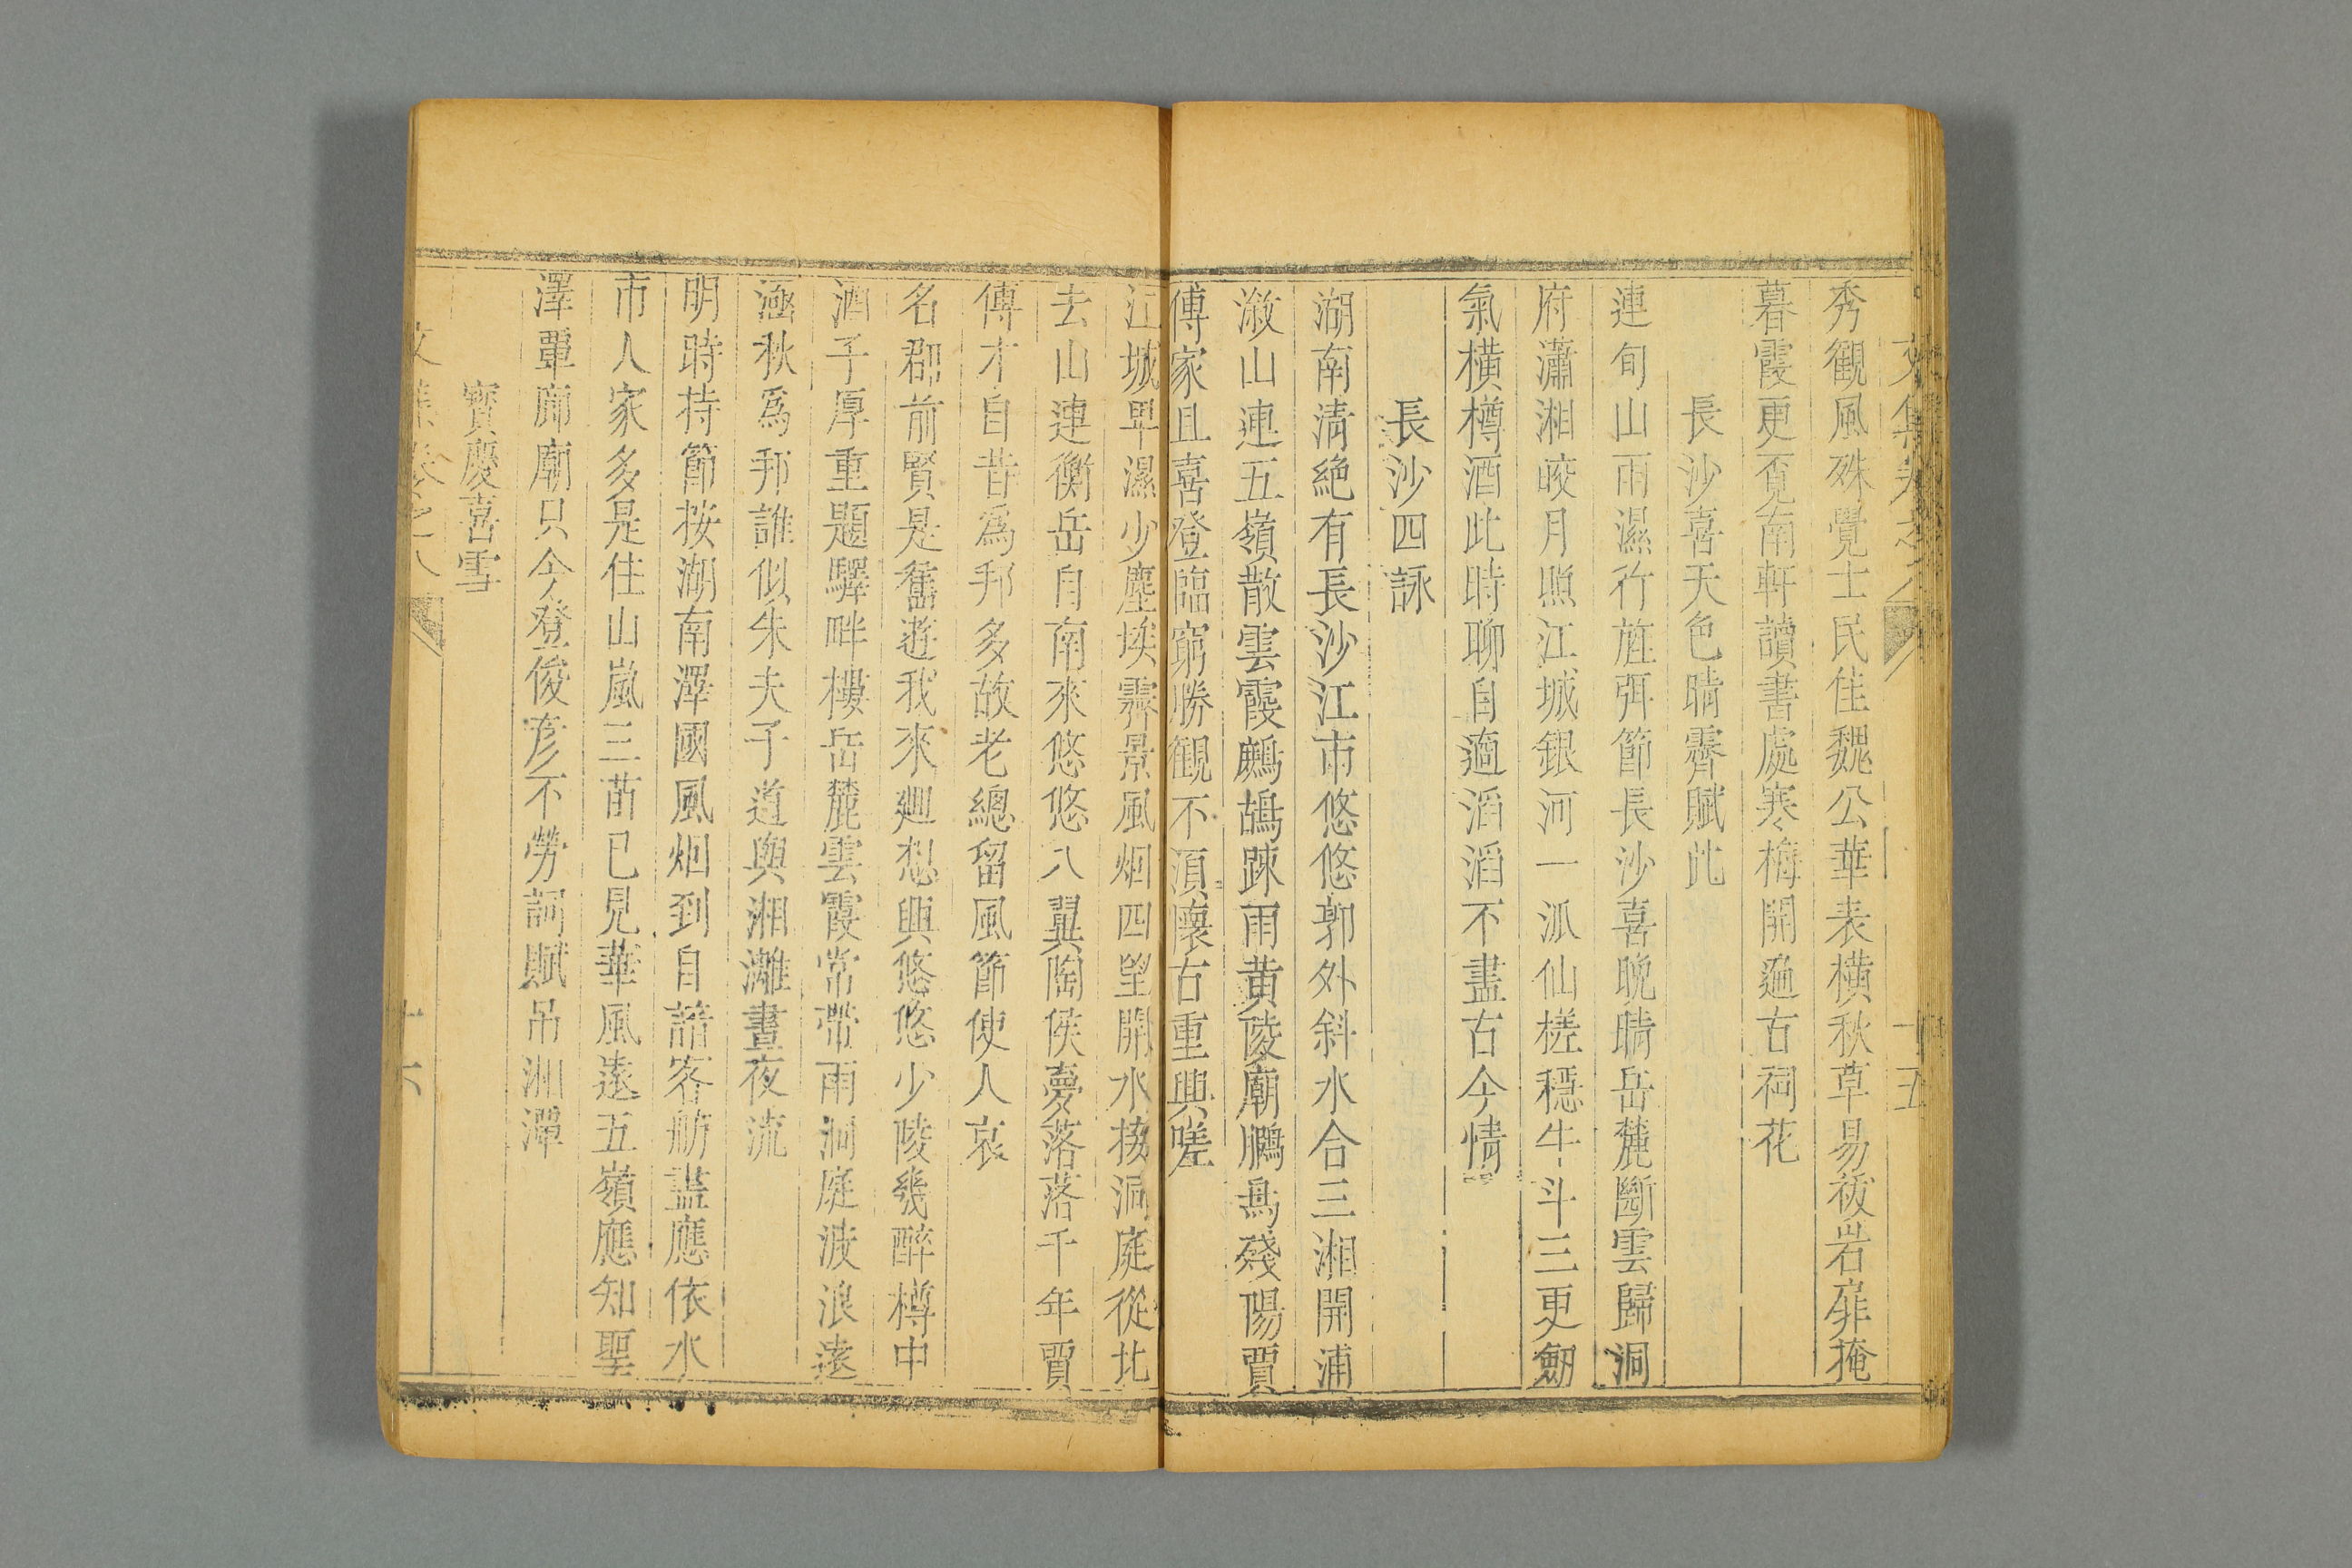 文集卷之八
十五
秀觀風殊覺士民佳魏公華表橫秋草易祓岩扉掩
暮霞更覓南軒讀書處寒梅開遍古祠花
長沙喜天色晴霽賦此
連旬山雨濕行旌弭節長沙喜晚晴岳麓斷雲歸洞
府瀟湘皎月照江城銀河一派仙槎穩牛斗三更劒
氣橫樽酒此時聊自適滔滔不盡古今情
長沙四詠
湖南淸絶有長沙江市悠悠郭外斜水合三湘開浦
漵山連五嶺散雲霞鷓鴣踈雨黄陵廟鵩鳥殘陽賈
傅家且喜登臨窮勝觀不湏懷古重興嗟
江城卑濕少塵埃霽景風烟四望開水接洞庭從北
去山連衡岳自南來悠悠八翼陶侯夢落落千年賈
傅才自昔爲邦多故老總留風節使人哀
名郡前賢是舊遊我來廻想興悠悠少陵幾醉樽中
酒子厚重題驛畔樓岳麓雲霞常帶雨洞庭波浪遠
涵秋爲邦誰似朱夫子道與湘灕晝夜流
明時持節按湖南澤國風烟到自諳客舫盡應依水
市人家多是住山嵐三苗已見華風遠五嶺應知聖
澤覃廊廟只今登俊彥不勞詞賦吊湘潭
寳慶喜雪
文集卷之八
十六